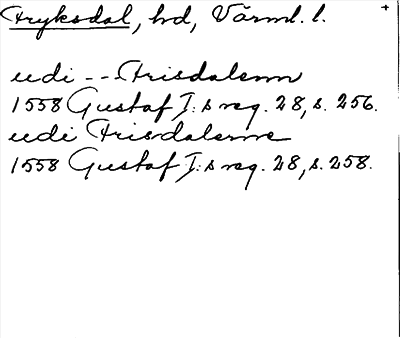 Fryksdal, hd, Värml. l. +
udi - - Frisdalenn
1558 Gustaf I:s reg. 28, s. 256.
udi Frisdalenne
1558 Gustaf I:s reg. 28, s. 258.